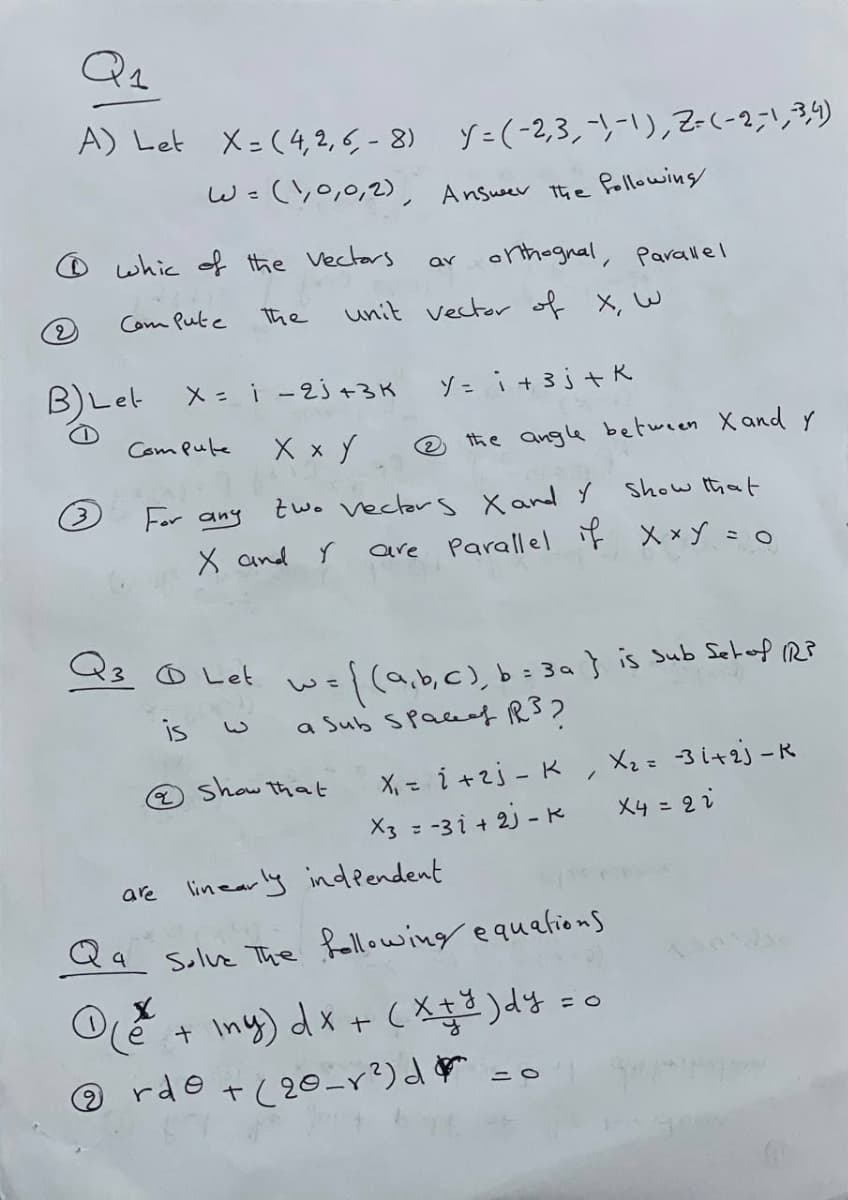 Q1
A) Let X = (4,2,6,-8) y = (-2,3,-1,-1), Z=(-2,-1,-3,4)
W = (1,0,0,2), Answer the following
① whic of the vectors ar orthognal, parallel
② Compute the unit vector of X, W
B) Let X = i - 2j + 3K y = i + 3j + K
① Compute X × y ② the angle between X and y
③ For any two vectors X and y show that
X and y are parallel if X × y = 0
Q3 ① Let w = { (a,b,c), b = 3a } is sub set of IR³
is w a sub space of IR³ ?
② Show that X₁ = i + 2j - K , X₂ = -3i + 2j - K
X₃ = -3i + 2j - K X4 = 2i
are linearly indpendent
Q4 Solve The following equations
① (e^x + lny) dx + (\frac{x+y}{y}) dy = 0
② rdθ + (2θ - r²) dr = 0